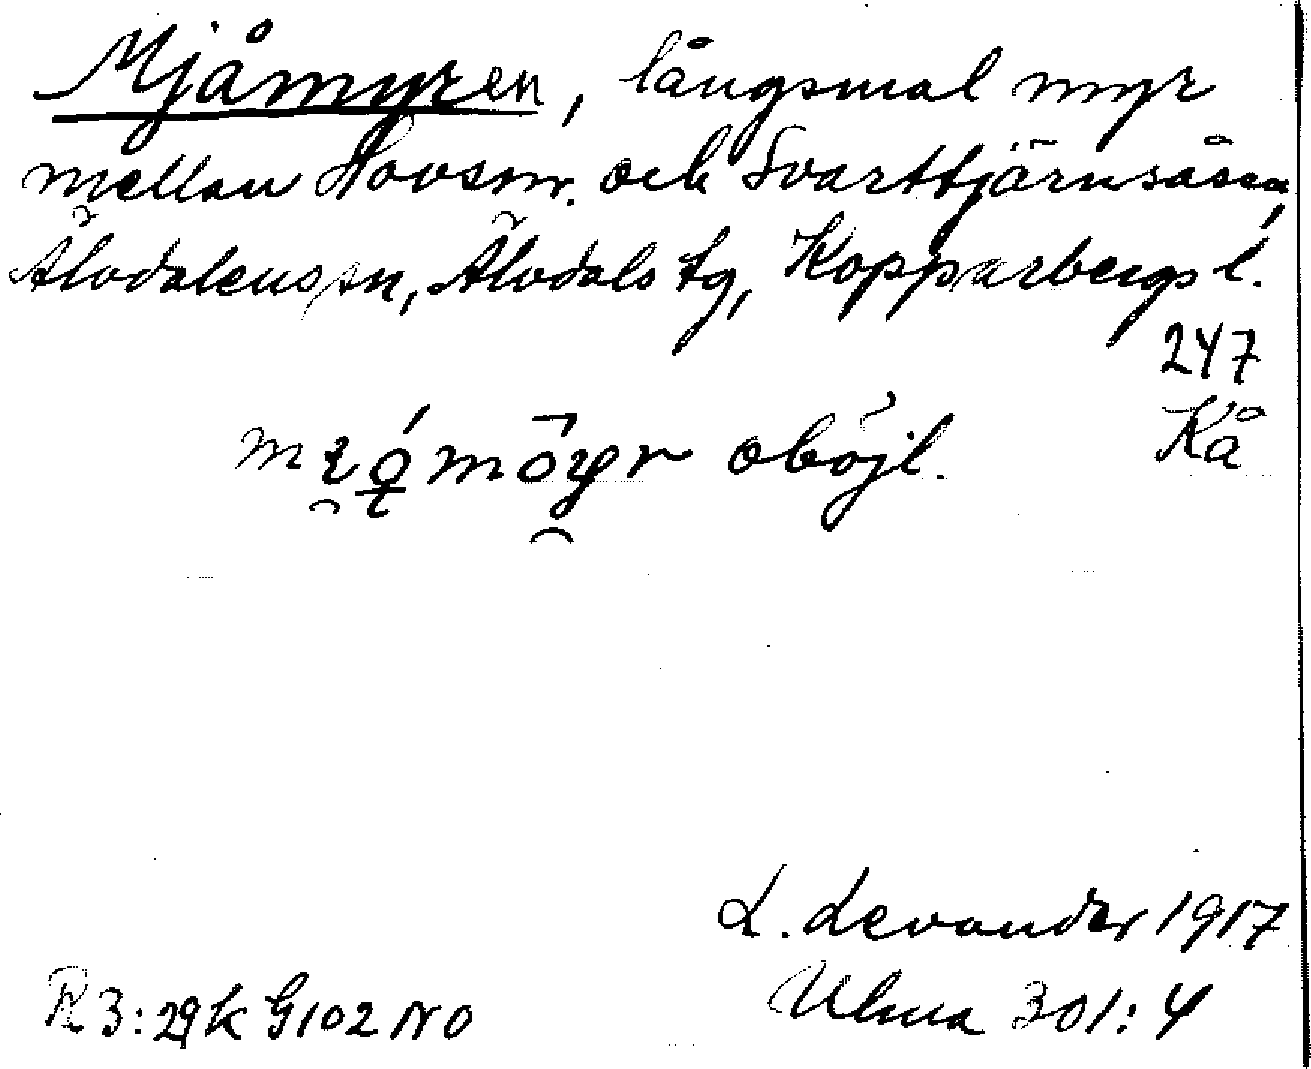 Mjåmyren, långsmal myr
mellan Hovsm. och Svarttjärnsåsen,
Älvdalens sn, Älvdals tg, Kopparbergs l.
247
Kå
oböjl.
L. Levander 1917
Ulma 301:4
R 3:29k G102 NO